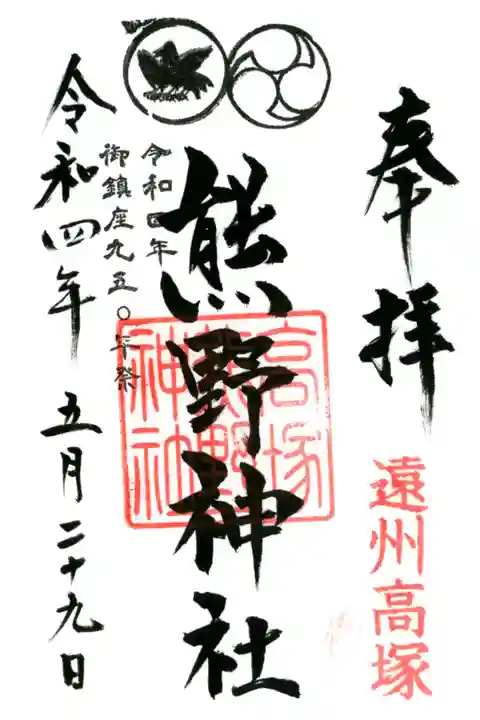 奉拝
遠州高塚
熊野神社
高塚
熊野
神社
令和四年
御鎮座九五〇年祭
令和四年 五月二十九日